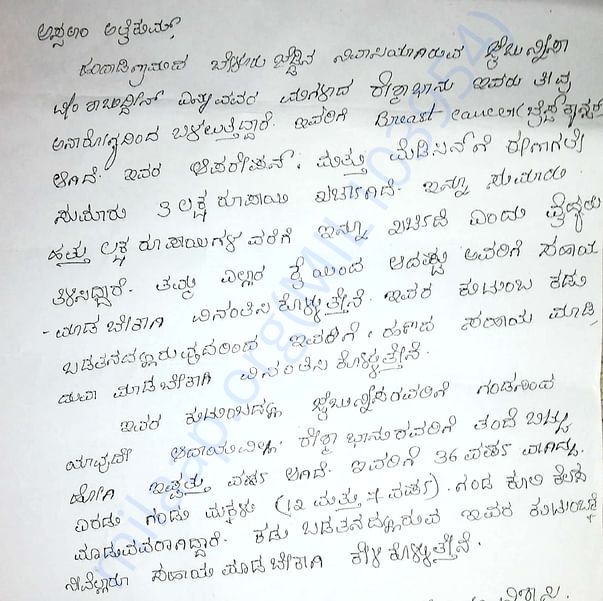 ಅಸ್ಸಲಾಂ ಅಲೈಕುಮ್,
ಬೆಳ್ಳಾರು ನಿವಾಸಿಯಾಗಿರುವ ಜೈಬುನ್ನೀಸಾ
ಎನ್ನುವವರ ಮಗಳಾದ ರೇಶ್ಮಾಭಾನು ಇವರು ತೀವ್ರ
ಅನಾರೋಗ್ಯದಿಂದ ಬಳಲುತ್ತಿದ್ದಾರೆ. ಇವರಿಗೆ Breast cancer (ಬ್ರೆಸ್ಟ್ ಕ್ಯಾನ್ಸರ್)
ಆಗಿದೆ. ಇವರ ಆಪರೇಷನ್, ಮತ್ತು ಮೆಡಿಸನ್‌ಗೆ ಈಗಾಗಲೇ
ಸುಮಾರು 3 ಲಕ್ಷ ರೂಪಾಯಿ ಖರ್ಚಾಗಿದೆ. ಇನ್ನೂ ಸುಮಾರು
ಹತ್ತು ಲಕ್ಷ ರೂಪಾಯಿಗಳ ವರೆಗೆ ಇನ್ನೂ ಖರ್ಚಿದೆ ಎಂದು ವೈದ್ಯರು
ತಿಳಿಸಿದ್ದಾರೆ. ತಮ್ಮ ಎಲ್ಲಾರ ಕೈಯಿಂದ ಆದಷ್ಟು ಅವರಿಗೆ ಸಹಾಯ
- ಮಾಡಬೇಕಾಗಿ ವಿನಂತಿಸಿ ಕೊಳ್ಳುತ್ತೇನೆ. ಇವರ ಕುಟುಂಬ ಕಡು
ಬಡತನದಲ್ಲಿರುವುದರಿಂದ ಇವರಿಗೆ, ಸಹಾಯ ಮಾಡಿ,
ದುವಾ ಮಾಡಬೇಕಾಗಿ ವಿನಂತಿಸಿ ಕೊಳ್ಳುತ್ತೇನೆ.
ಇವರ ಕುಟುಂಬದಲ್ಲಿ ಜೈಬುನ್ನೀಸರವರಿಗೆ ಗಂಡನಿಂದ
ಯಾವುದೇ ಆದಾಯವಿಲ್ಲ. ರೇಶ್ಮಾ ಭಾನುರವರಿಗೆ ತಂದೆ ಬಿಟ್ಟು
ಹೋಗಿ ಇಪ್ಪತ್ತು ವರ್ಷ ಆಗಿದೆ. ಇವರಿಗೆ 36 ವರ್ಷ ವಾಗಿದ್ದು,
ಎರಡು ಗಂಡು ಮಕ್ಕಳು (12 ಮತ್ತು 7 ವರ್ಷ). ಗಂಡ ಕೂಲಿ ಕೆಲಸ
ಮಾಡುವವರಾಗಿದ್ದಾರೆ. ಕಡು ಬಡತನದಲ್ಲಿರುವ ಇವರ ಕುಟುಂಬಕ್ಕೆ
ನೀವೆಲ್ಲಾರೂ ಸಹಾಯ ಮಾಡಬೇಕಾಗಿ ಕೇಳಿ ಕೊಳ್ಳುತ್ತೇನೆ.